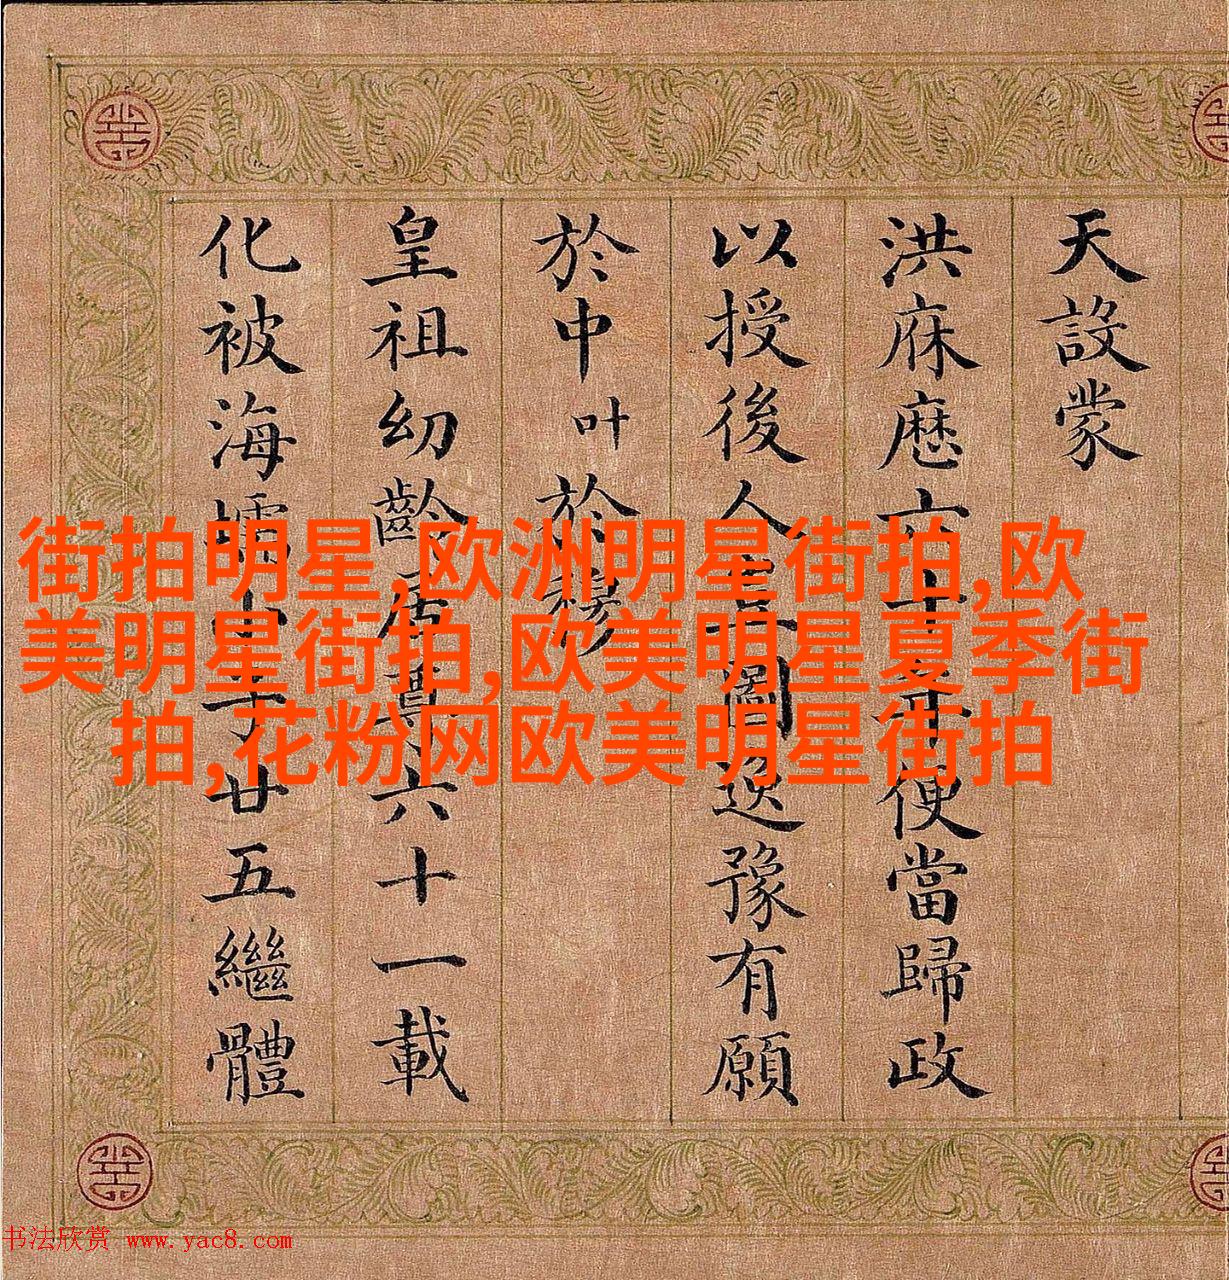 天設蒙
洪庥厯六十年便當歸政
以授後人長圖逸豫有願
於中叶於穆
皇祖幼齡居尊六十一載
化被海壖小子廿五繼體
街拍明星,欧洲明星街拍,欧
美明星街拍,欧美明星夏季街
拍,花粉网欧美明星街拍
书法欣赏 www.yac8.com